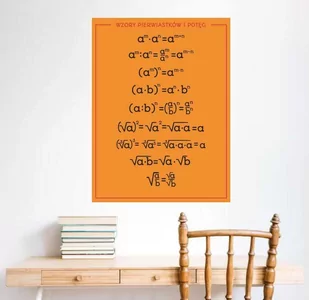 WZORY PIERWIASTKÓW I POTĘG
aᵐ·aⁿ=aᵐ⁺ⁿ
aᵐ:aⁿ=aᵐ/aⁿ=aᵐ⁻ⁿ
(aᵐ)ⁿ=aᵐ·ⁿ
(a·b)ⁿ=aⁿ·bⁿ
(a:b)ⁿ=(a/b)ⁿ=aⁿ/bⁿ
(√a)²=√a²=√a·a=a
(³√a)³=³√a³=³√a·a·a=a
√a·b=√a·√b
√a/b=√a/√b